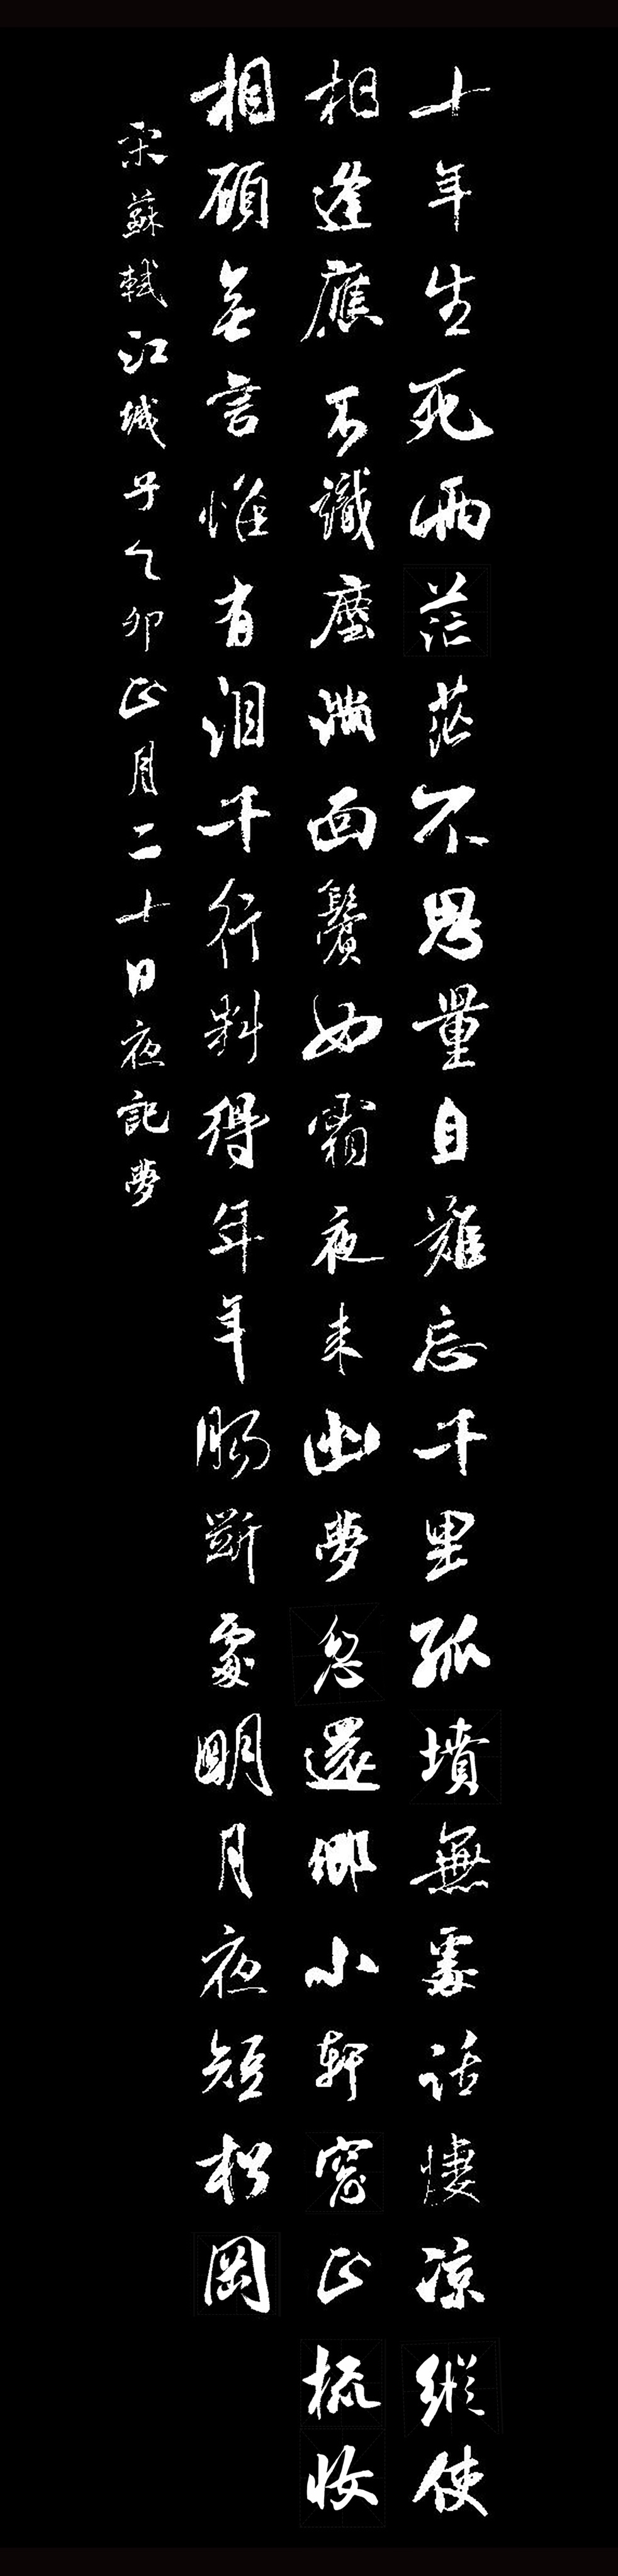 十年生死兩茫茫不思量自難忘千里孤墳無處話悽涼縱使
相逢應不識塵滿面鬢如霜夜來幽夢忽還鄉小軒窗正梳妝
相顧無言惟有淚千行料得年年腸斷處明月夜短松岡
宋蘇軾江城子乙卯正月二十日夜記夢